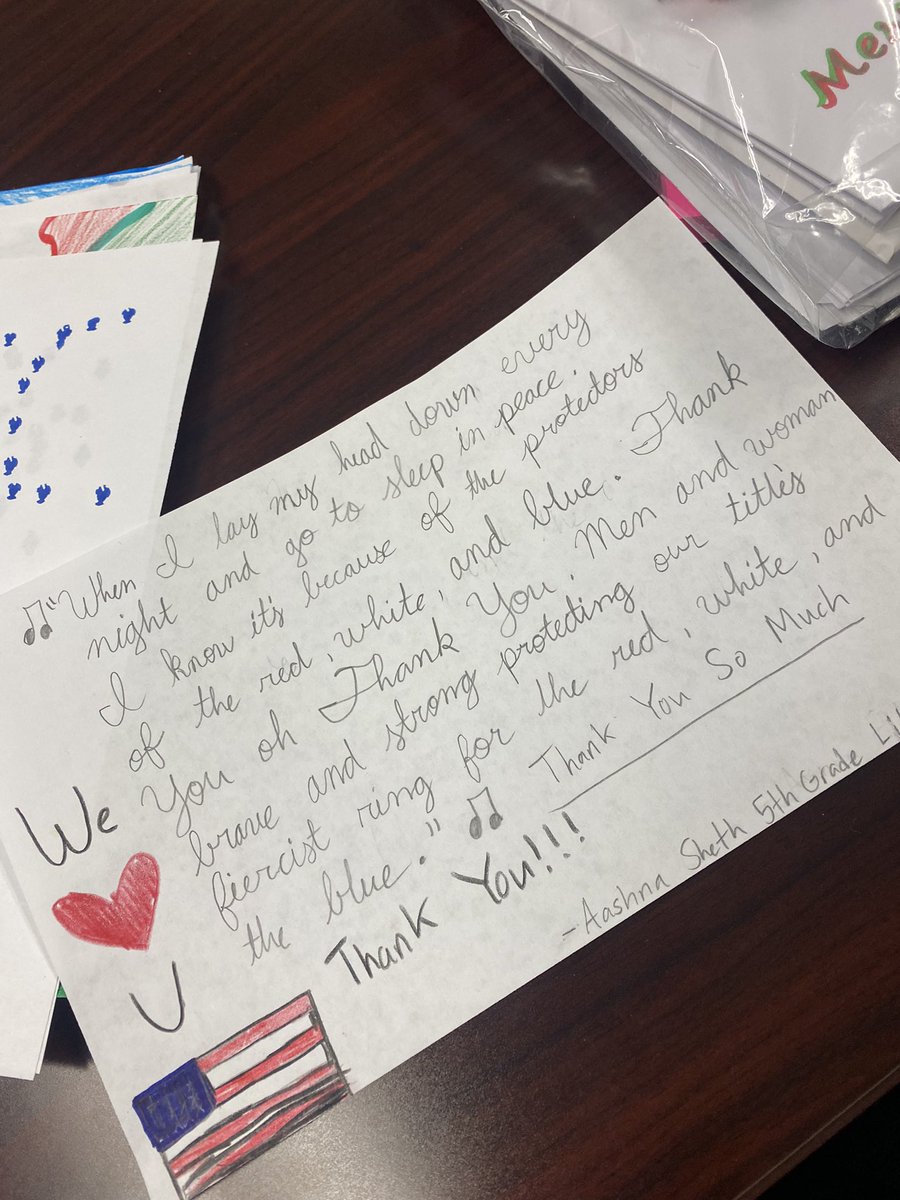 Mer
♫"When I lay my head down every
night and go to sleep in peace.
I know it's because of the protectors
of the red, white, and blue. Thank
You oh Thank You. Men and woman
brave and strong protecting our title's
fiercist ring for the red, white, and
the blue." ♫ Thank You So Much
Thank You!!!
-Aashna Sheth 5th Grade
We
U